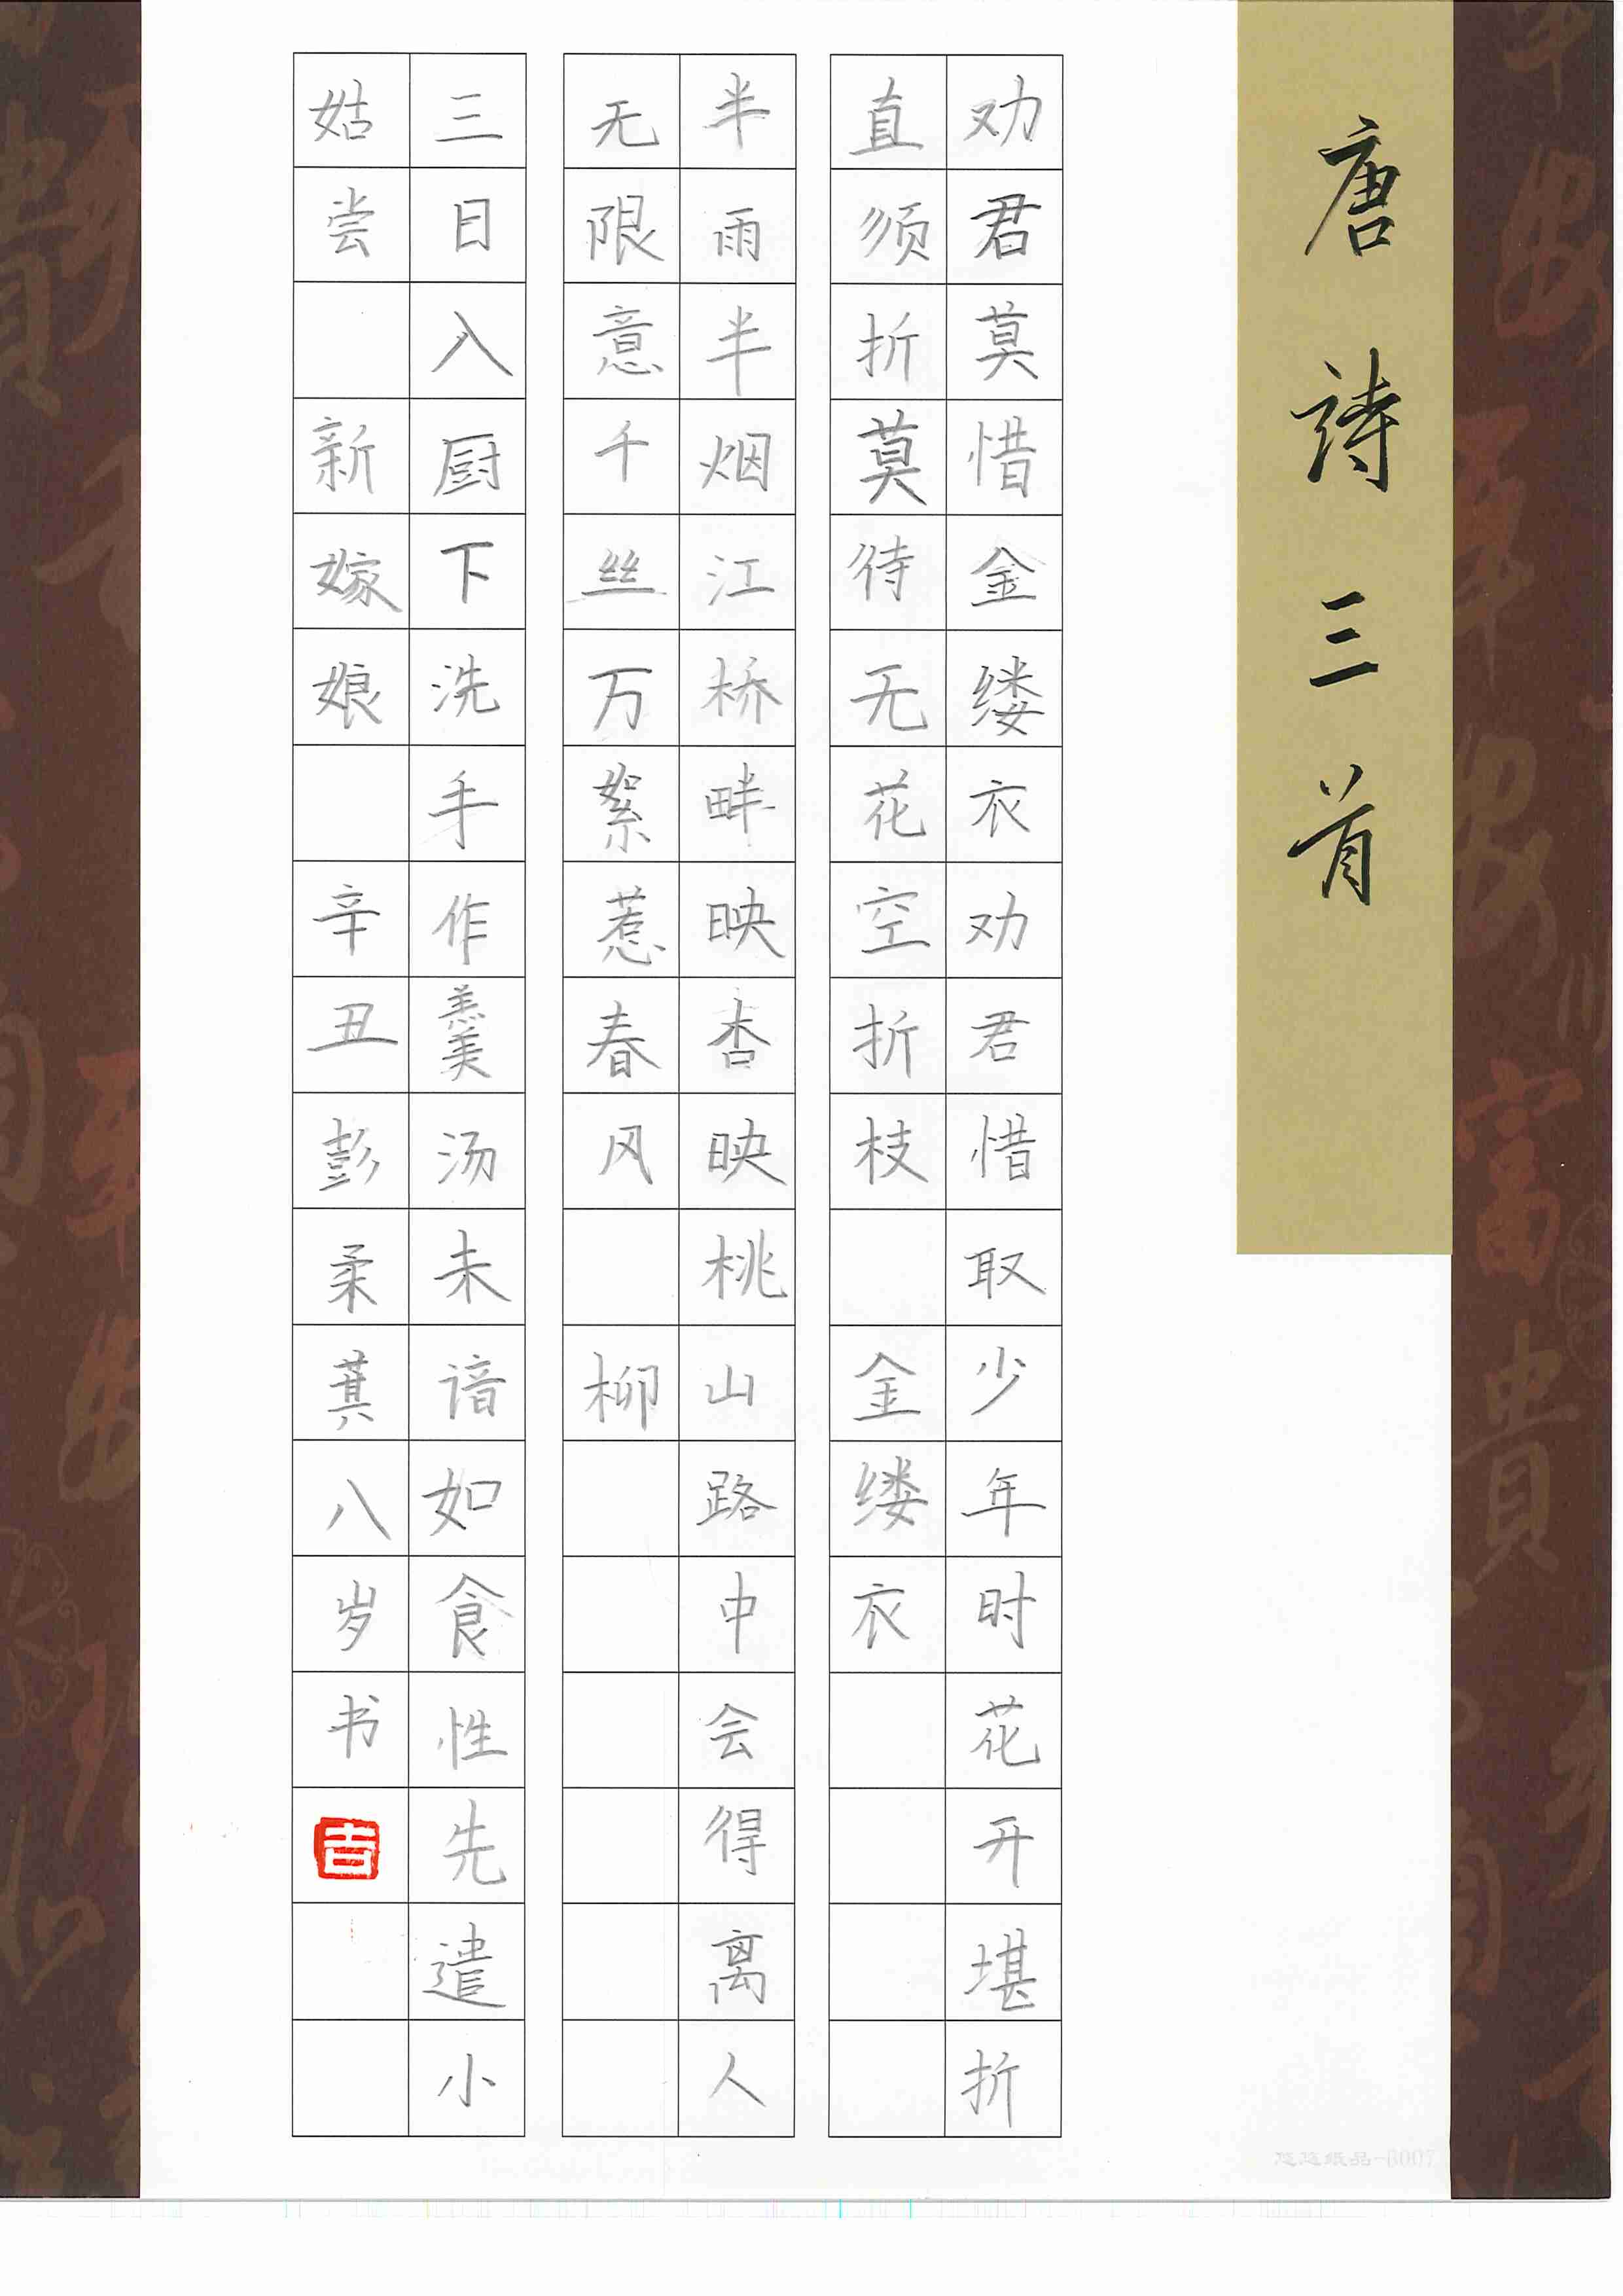 唐詩三首
劝君莫惜金缕衣劝君惜取少年时花开堪折
直须折莫待无花空折枝 金缕衣
半雨半烟江桥畔映杏映桃山路中会得离人
无限意千丝万絮惹春风 柳
三日入厨下洗手作羹汤未谙如食性先遣小
姑尝 新嫁娘 辛丑彭柔萁八岁书
吉
悠悠纸品-6007